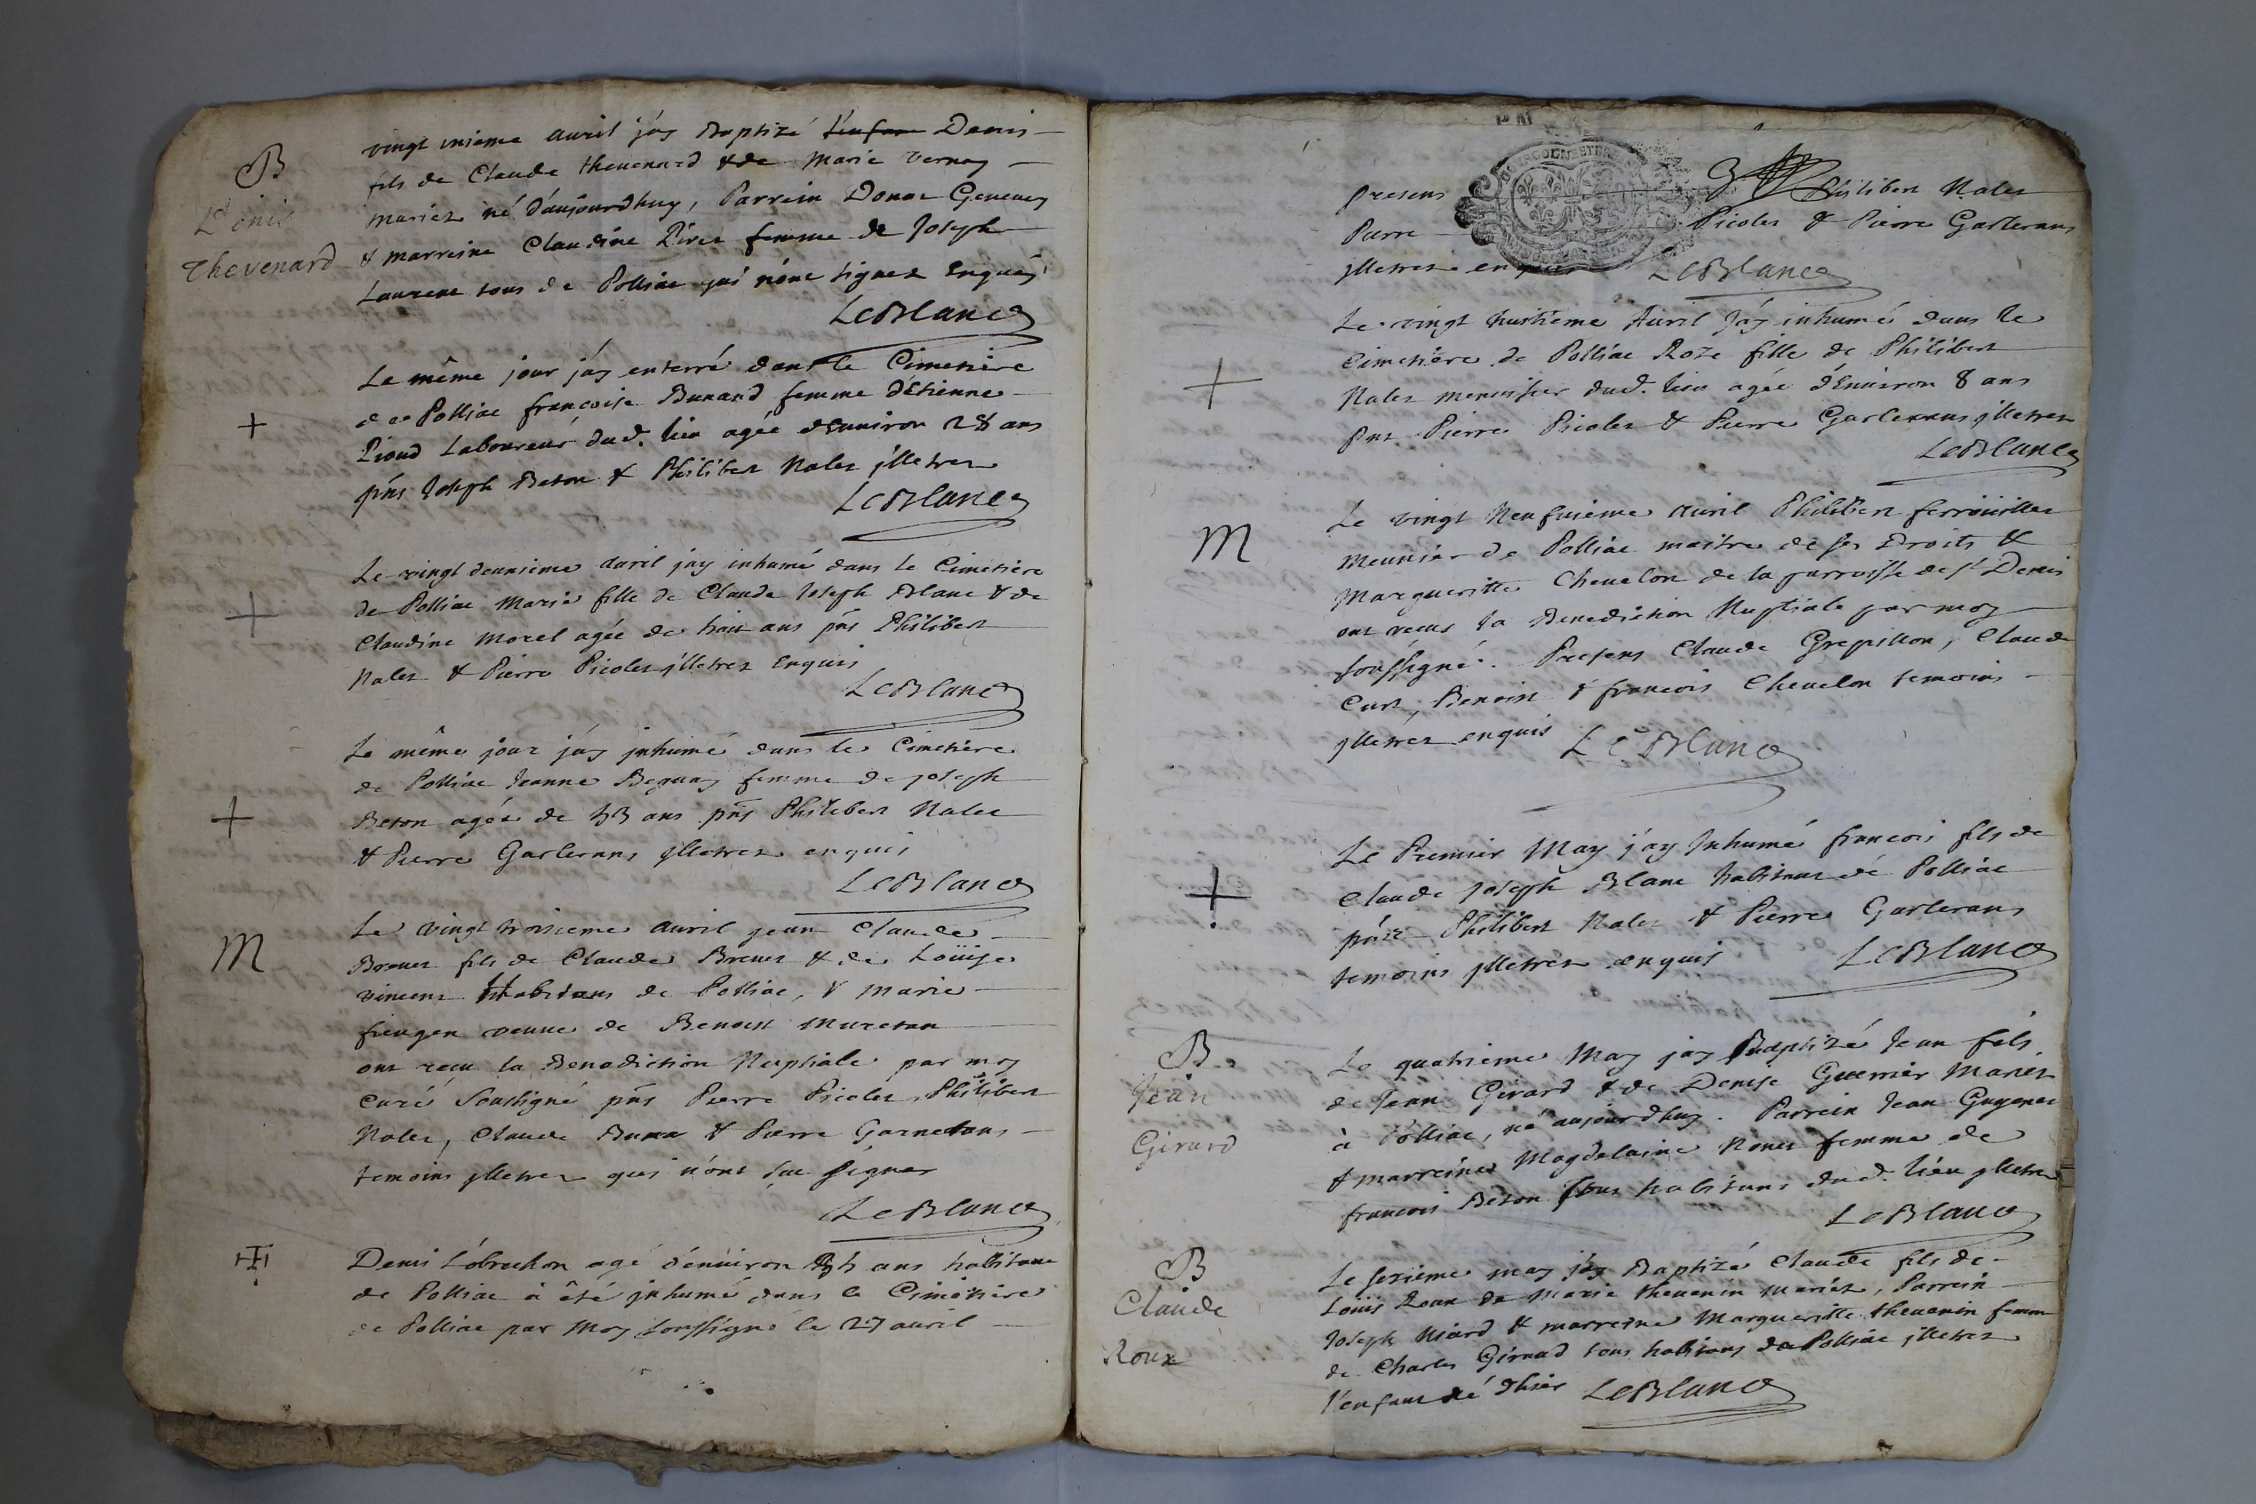 B
Denis
Thevenard
vingt unieme avril j'ay Baptizé Denis
fils de Claude thevenard & de Marie vernay
mariez né d'aujourdhuy, Parrein Donat
& marreine Claudine femme de Joseph
Laurent tous de Polliac qui n'ont signez Enquis
LeBlanc
+
Le même jour j'ay enterré dans le Cimetiére
de Polliac francoise Bunand femme d'Etienne
Pioud Laboureur dud. lieu agée d'Environ 28 ans
pñs Joseph Beton & Philibert Nalet jlletrez
LeBlanc
+
Le vingt deuxieme avril j'ay inhumé dans le Cimetiére
de Polliac Marie fille de Claude Joseph Blanc & de
Claudine Morel agée de huit ans pñs Philibert
Nalet & Pierre Picolet jlletrez Enquis
LeBlanc
+
Le même jour j'ay jnhumé dans le Cimetiére
de Polliac Jeanne femme de joseph
Beton agée de ans pñs Philibert Nalet
& Pierre Garlerans jlletrez enquis
LeBlanc
M
Le vingt troisieme avril jean Claude
Brevet fils de Claude Brevet & de Loüise
vincent habitans de Polliac, & marie
veuve de Benoist
ont recu la Benediction Nuptiale par moy
curé Soussigné pñs Pierre Picolet, Philibert
Nalet, Claude & Pierre
temoins jlletrez qui n'ont sue signer
LeBlanc
Denis agé d'enuiron ans habitant
de Polliac à été jnhumé dans le Cimetiére
de Polliac par Moy soussigné le 27 avril
presens Philibert Nalet
Pierre Picolet & Pierre Garlerans
jlletrez enquis LeBlanc
+
Le vingt huitieme Avril j'ay inhumé dans le
Cimetiére de Polliac Roze fille de Philibert
Nalet menuisier dud. lieu agée d'Environ 8 ans
pnt Pierre Picolet & Pierre Garlerans jlletrez
LeBlanc
M
Le vingt Neufuieme Avril Philibert ferroüillat
Meunier de Polliac maitre de ses Droits &
Margueritte Chevelon de la parroisse de st Denis
ont receu la Benediction Nuptiale par moy
soussigné. Presens Claude Grepillon, Claude
Curt, Benoist & francois Chevelon temoins
jlletrez enquis LeBlanc
+
Le Premier May j'ay Inhumé francois fils de
Claude Joseph Blanc habitant de Polliac
Philibert Nalet & Pierre Garlerans
temoins jlletrez enquis LeBlanc
B
Jean
Girard
Le quatrieme May j'ay Baptizé Jean fils
de Jean Girard & de Denise Guerrier Mariez
à Polliac, né aujourdhuy. Parrein Jean Guyenet
& marreine Magdelaine femme de
francois Beton tous habitans dud. lieu jlletrez
LeBlanc
B
Claude
Roux
Le sezieme may j'ay Baptizé Claude fils de
Loüis Roux de Marie thevenin mariez, Parrein
Joseph Niard & marreine Margueritte thevenin femme
de Charles Giraud tous habitans de Polliac jlletrez
l'enfant né d'hier LeBlanc